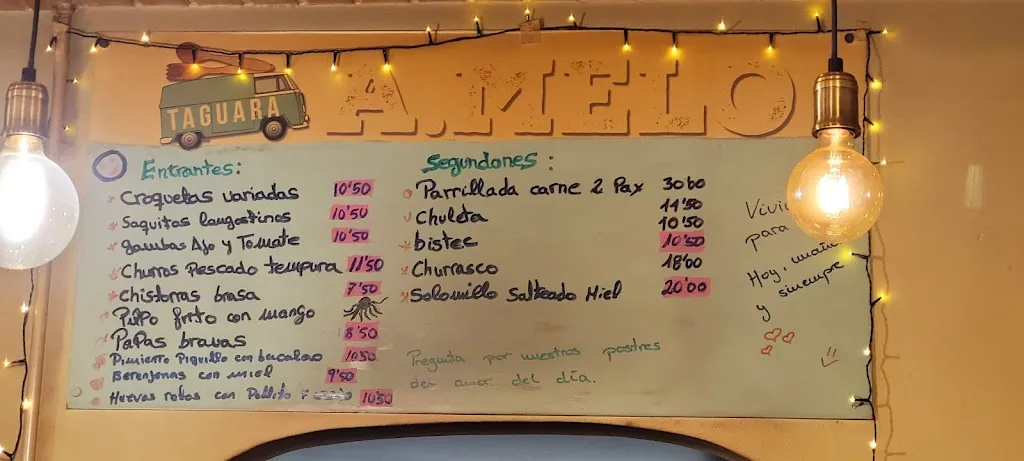 TAGUARA
A.MELO
Entrantes:
Croquetas variadas 10'50
Saquitas langostinos 10'50
gambas Ajo y Tomate 10'50
Churros Pescado tempura 11'50
Chistorras brasa 7'50
Pulpo frito con mango
Papas bravas 8'50
Pimiento Piquillo con bacalao 10'50
Berenjenas con miel 9'50
Huevos rotos con Pollito 10'50
Segundones:
Parrillada carne 2 Pax 30'00
Chuleta 11'50
10'50
bistec 10'50
Churrasco 18'00
Solomillo Salteado Miel 20'00
Pregunta por nuestros postres
del amor del día.
para
Hoy,
y siempre